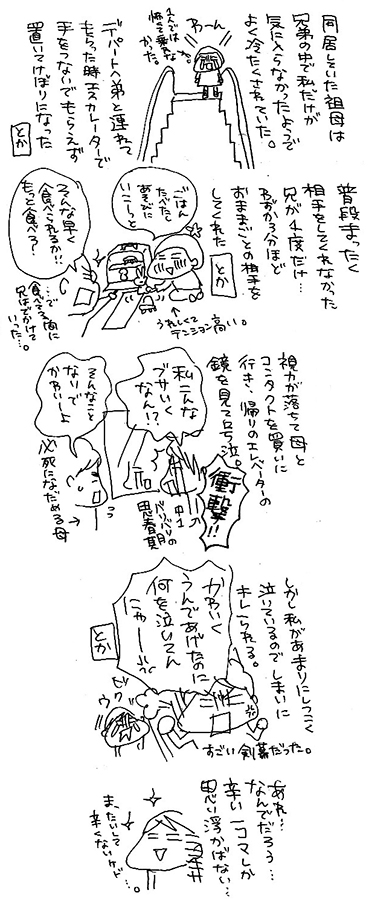 同居していた祖母は
兄弟の中で私だけが
気に入らなかったようで
よく冷たくされていた。
わーん
1人では
怖くて乗れな
かった。
デパートへ弟と連れて
もらった時エスカレーターで
手をつないでもらえず
置いてけぼりになった
とか
普段まったく
相手をしてくれなかった
兄が1度だけ…
わずか3分ほど
おままごとの相手を
してくれた
とか
ごはん
たべたら
あそびに
いこーっと
うれしくて
テンション高い。
そんな早く
食べられるか!!
もっと食べろ?
…で
食べてる間に
兄はでかけて
いった…。
視力が落ちて母と
コンタクトを買いに
行き、帰りのエレベーターの
鏡を見て立ち泣。
衝撃!!
私こんな
ブサいく
なん!?
中1
バリバリの
思春期
そんなこと
ないで
かわいーよ
必死になだめる母
しかし私があまりにしつこく
泣いているので しまいに
キレられる。
かわいく
うんであげたのに
何を泣いてん
にゃーっっ
とか
ビク
ウ
すごい剣幕だった。
あれ…
なんでだろう…
辛い一コマしか
思い浮かばない…
ま、たいして
辛くないけど
…。